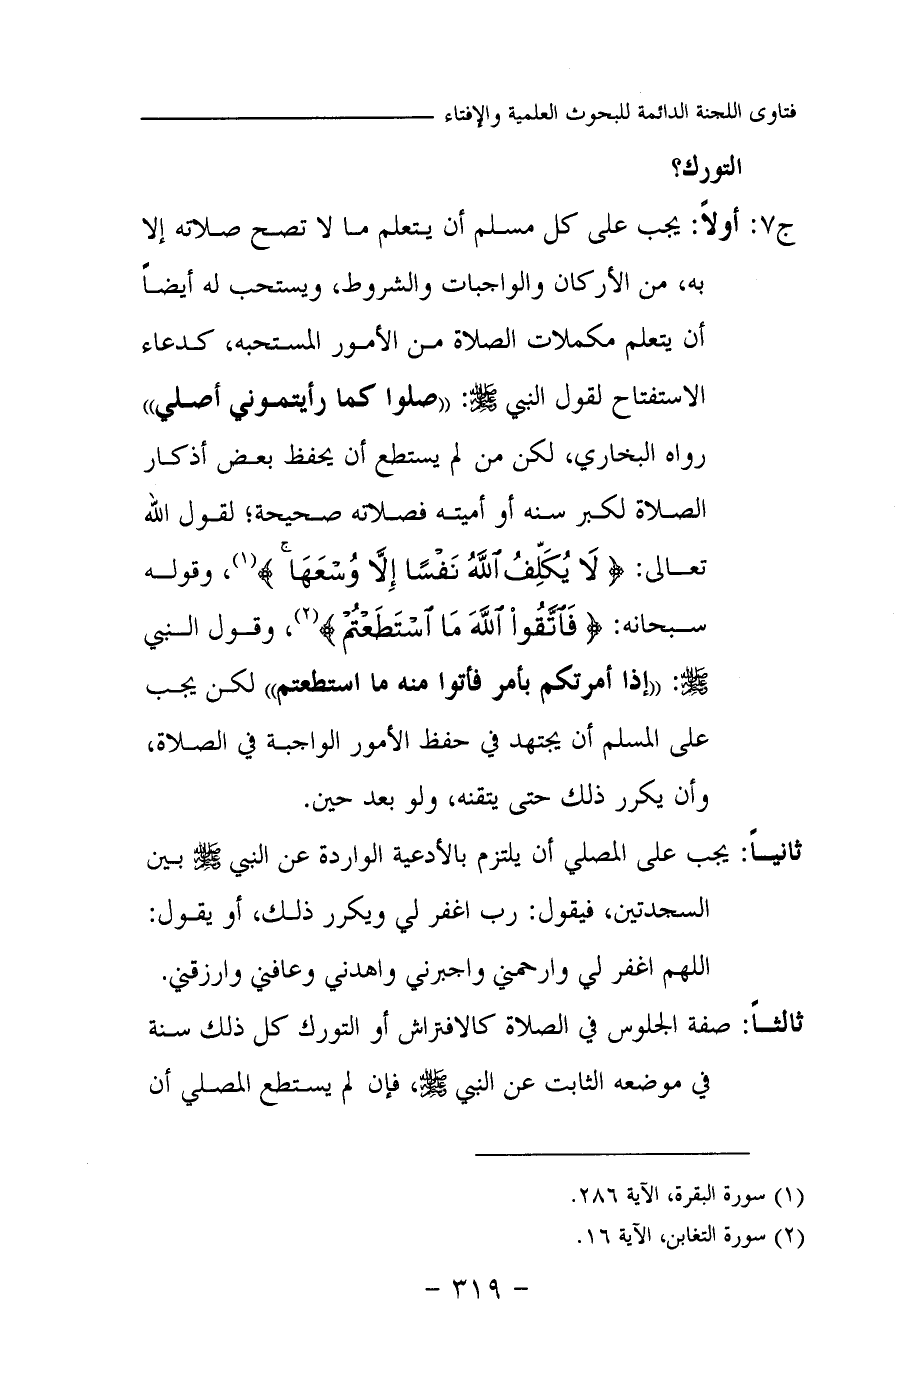 فتاوى اللجنة الدائمة للبحوث العلمية والإفتاء
التورك؟
ج٧: أولاً: يجب على كل مسلم أن يتعلم ما لا تصح صلاته إلا
به، من الأركان والواجبات والشروط، ويستحب له أيضاً
أن يتعلم مكملات الصلاة من الأمور المستحبه، كدعاء
الاستفتاح لقول النبي ﷺ: «صلوا كما رأيتموني أصلي»
رواه البخاري، لكن من لم يستطع أن يحفظ بعض أذكار
الصلاة لكبر سنه أو أميته فصلاته صحيحة؛ لقول الله
تعالى: ﴿ لَا يُكَلِّفُ ٱللَّهُ نَفْسًا إِلَّا وُسْعَهَا ۚ ﴾(١)، وقوله
سبحانه: ﴿ فَٱتَّقُوا۟ ٱللَّهَ مَا ٱسْتَطَعْتُمْ ﴾(٢)، وقول النبي
ﷺ: «إذا أمرتكم بأمر فأتوا منه ما استطعتم» لكن يجب
على المسلم أن يجتهد في حفظ الأمور الواجبة في الصلاة،
وأن يكرر ذلك حتى يتقنه، ولو بعد حين.
ثانياً: يجب على المصلي أن يلتزم بالأدعية الواردة عن النبي ﷺ بين
السجدتين، فيقول: رب اغفر لي ويكرر ذلك، أو يقول:
اللهم اغفر لي وارحمني واجبرني واهدني وعافني وارزقني.
ثالثاً: صفة الجلوس في الصلاة كالافتراش أو التورك كل ذلك سنة
في موضعه الثابت عن النبي ﷺ، فإن لم يستطع المصلي أن
(١) سورة البقرة، الآية ٢٨٦.
(٢) سورة التغابن، الآية ١٦.
- ٣١٩ -